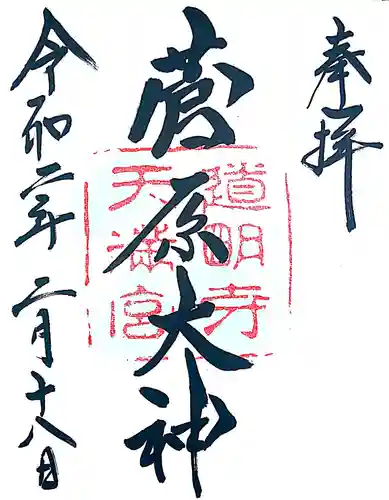 奉拝
菅原大神
道明寺
天満宮
令和二年 二月十八日